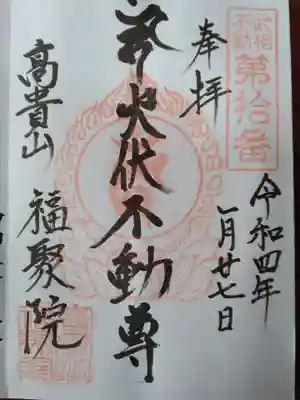 武相
不動
第拾番
奉拝
令和四年
一月廿七日
火伏不動尊
高貴山
福聚院